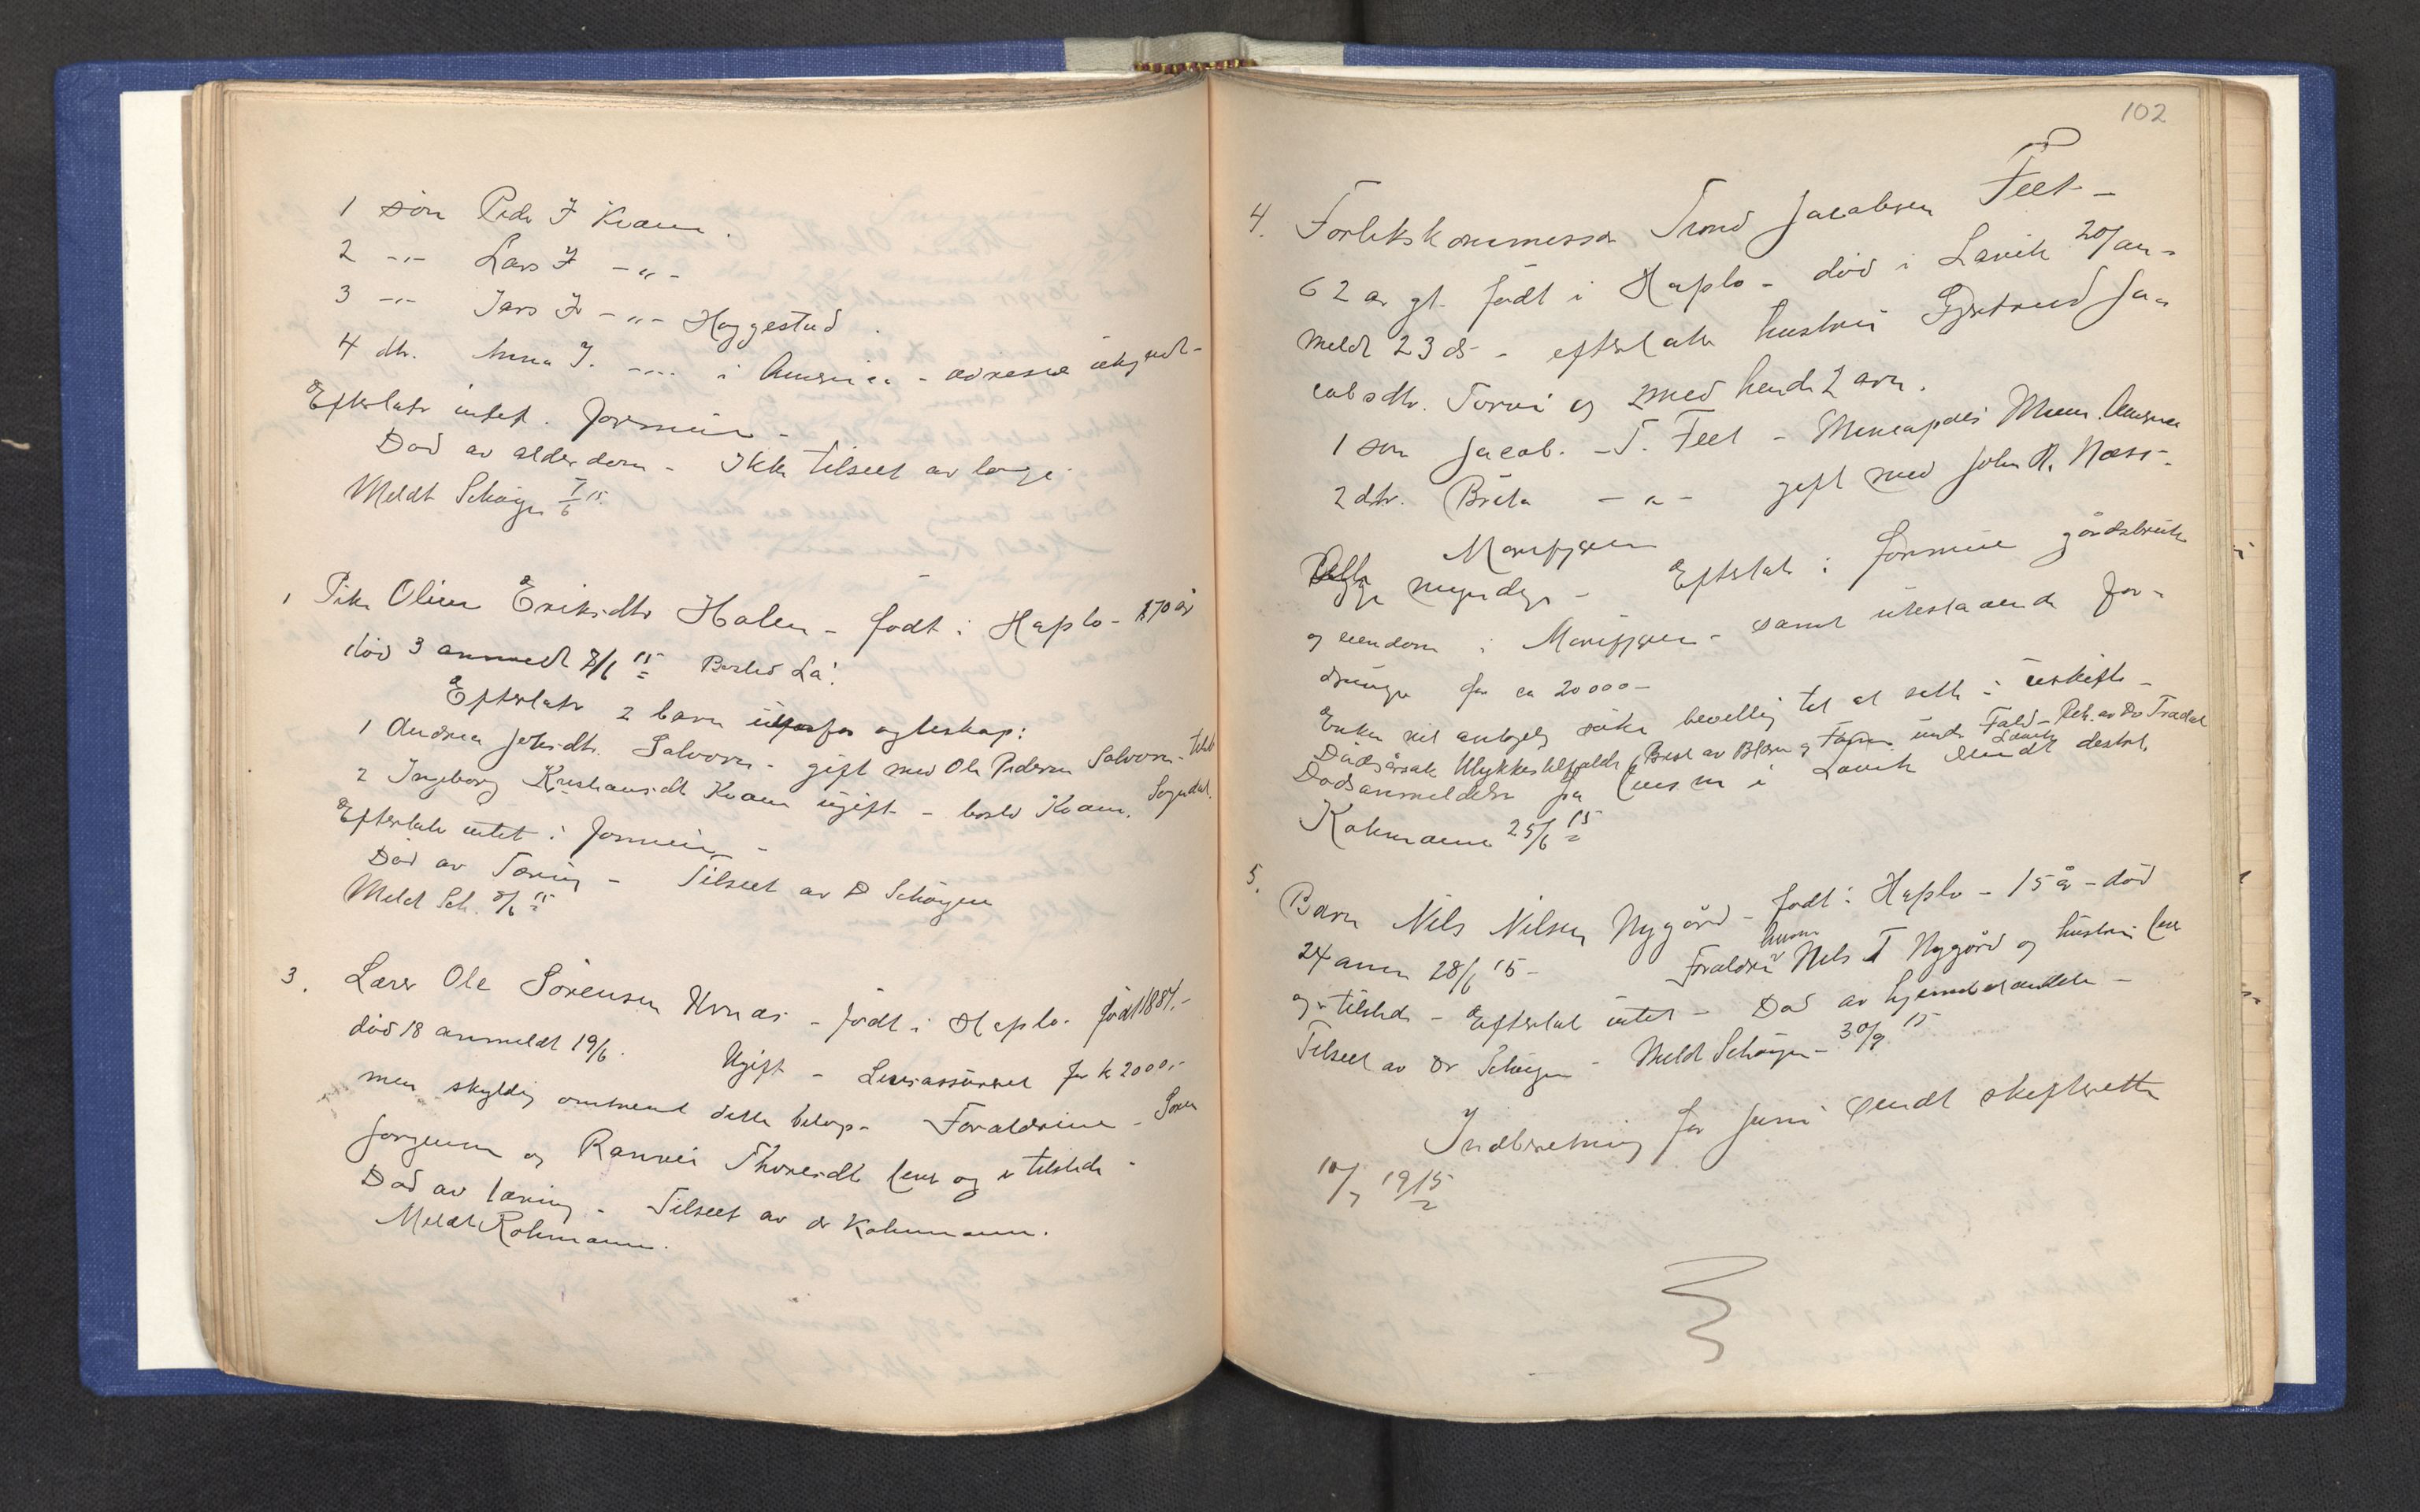 1 søn Peder J Kvam.
2 -"- Lars J -"-
3 -"- Iver J -"- Haggestad.
4 dtr. Anna J. -"- i Amerika - adresse ukjendt -
Efterlater intet i formue -
Død av alderdom - Ikke tilseet av læge.
Meldt Schøyen 7/6 15.
1 Pike Oline Eriksdtr Halen - født i Hafslo - 70 år
død 3 anmeldt 8/6 15 Bosted
Efterlater 2 barn utenfor egteskap:
1 Andrea Johsdtr. Solvorn - gift med Ole Pedersen Solvorn -
2 Ingeborg Kristiansdt Kvam ugift - bosted Kvam, Sogndal.
Efterlate intet i formue -
Død av Tæring - Tilseet av D Schøyen
Meldt Sch. 8/6 15
3. Lærer Ole Sørensen Urnæs - født i Hafslo - født 1887.-
død 18 anmeldt 19/6. Ugift - Livsassureret for kr 2000.-
men skyldig omtrent dette beløp - Forældrene - Søren
Jørgensen og Ranvei Thoresdt lever og er tilstede -
Død av tæring - Tilseet av dr Kahrmann.
Meldt Kahrmann.
102
4. Forlikskommissær Trond Jacobsen Feet -
62 ar gl. født i Hafslo - død i Lavik 20/ an-
meldt 23 ds - efterlater hustru Gjertrud Ja-
cobsdtr. Torvi og med hende 2 arv.
1 søn Jacob. T. Feet - Mineapolis Minn. Amerika
2 dtr. Brita -"- gift med John R. Næss -
Marifjæren
Begge myndige - Efterlat i formue gårdsbruk
og eiendom i Marifjæren - samt utestaaende for-
dringer for ca 20000 -
Enken vil antagelig søke bevilling til at sitte i uskifte -
Dødsårsak Ulykkestilfælde, Brist av under Fald - av Dr Tredal
Dødsanmeldelse fra lensm i Lavik sendt distrl.
Kahrmann 25/6 15
5. Barn Nils Nilsen Nygård - født i Hafslo - 15 år - død
24 anm 28/6 15 - Forældre husm Nils T Nygård og hustru lever
og er tilstede - Efterlat intet - Død av hjernebetændelse -
Tilseet av Dr Schøyen - Meldt Schøyen - 30/9 15
Indberetning for juni sendt skifteretten
10/7 1915